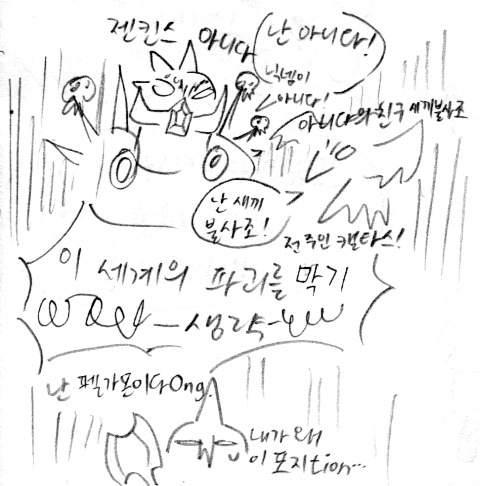 젠킨스 아니다
난 아니다!
닉넴이
아니다!
아니다의 친구 새끼불사조
난 새끼
불사조!
전 주인 캘타스!
이 세계의 파괴를 막기
생략
난 펠가몬이다Ong.
내가 왜
이 포지tion...